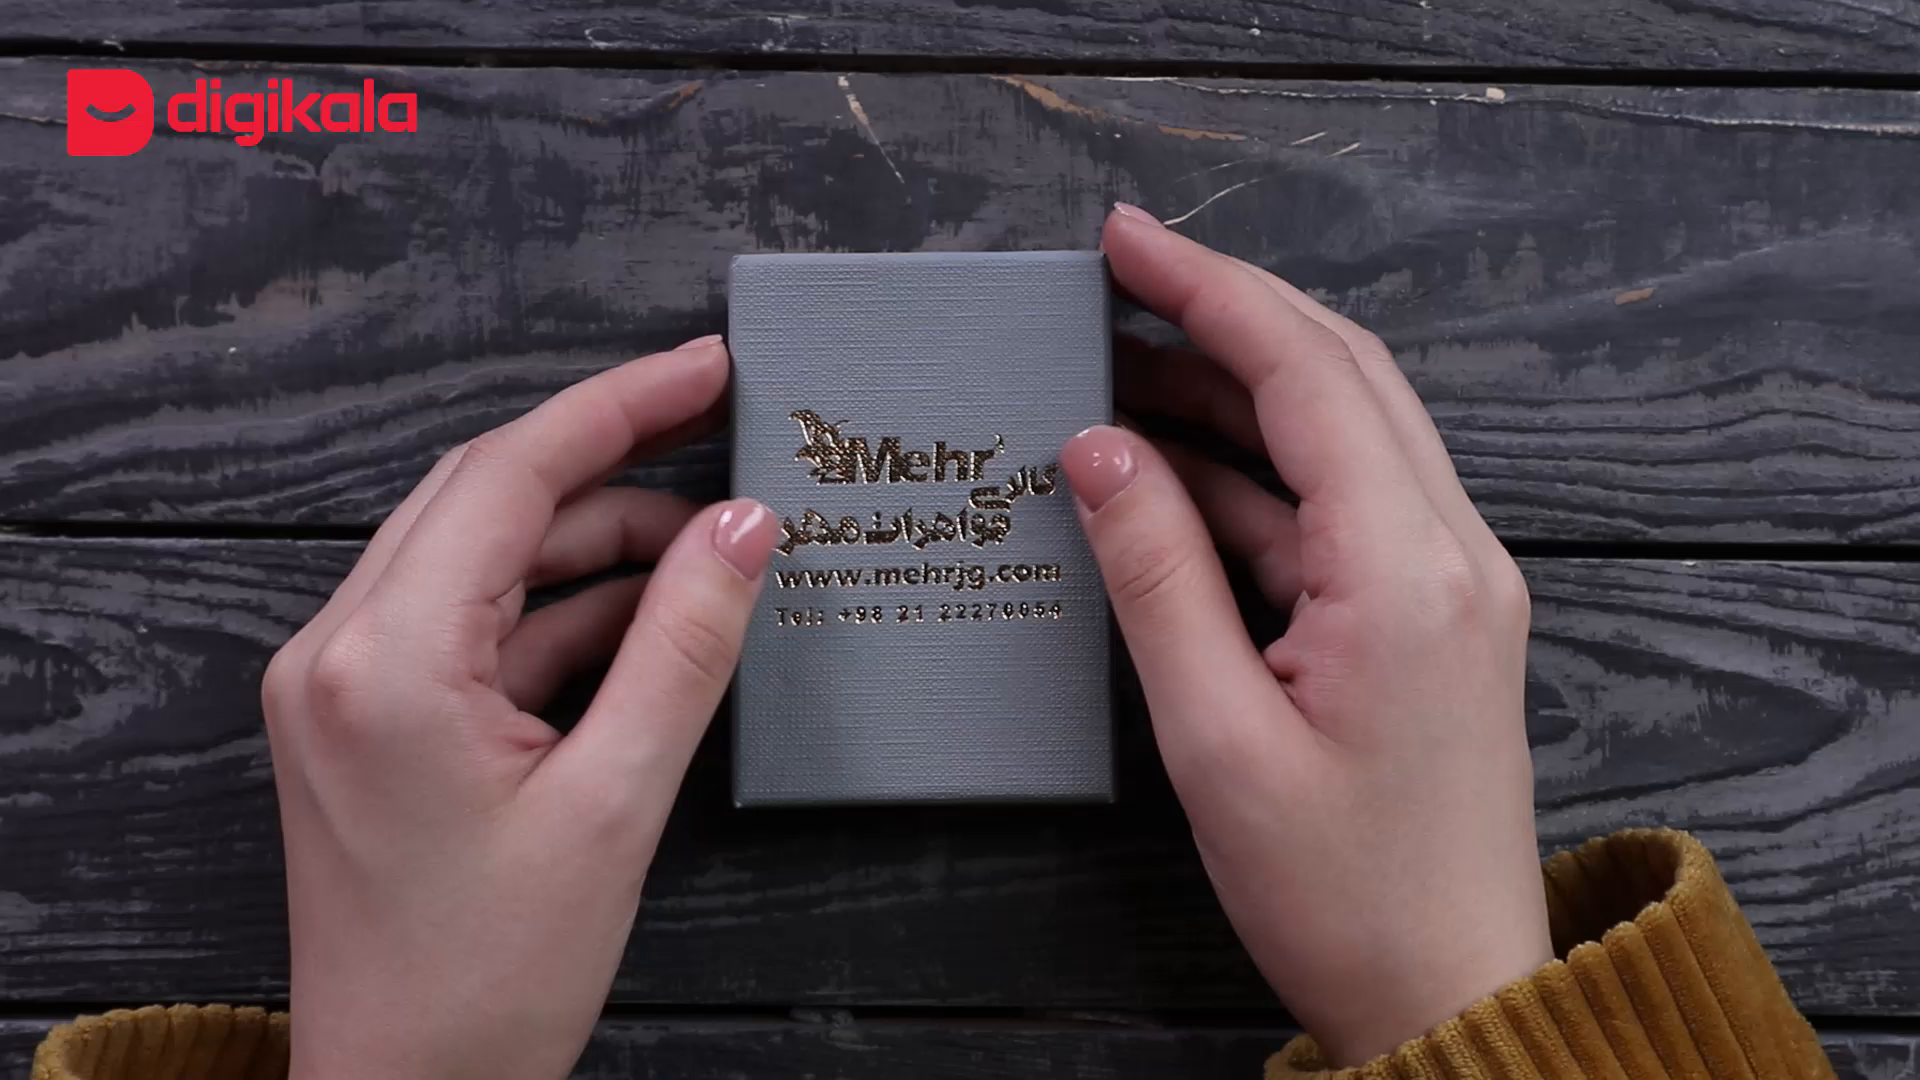 digikala
Mehr
کالای
جواهرات مهر
www.mehrjg.com
Tel: +98 21 22270054